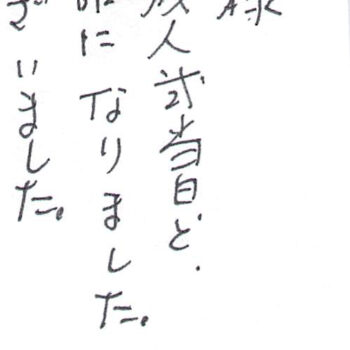 様
成人式当日と、
になりました。
ざいました。